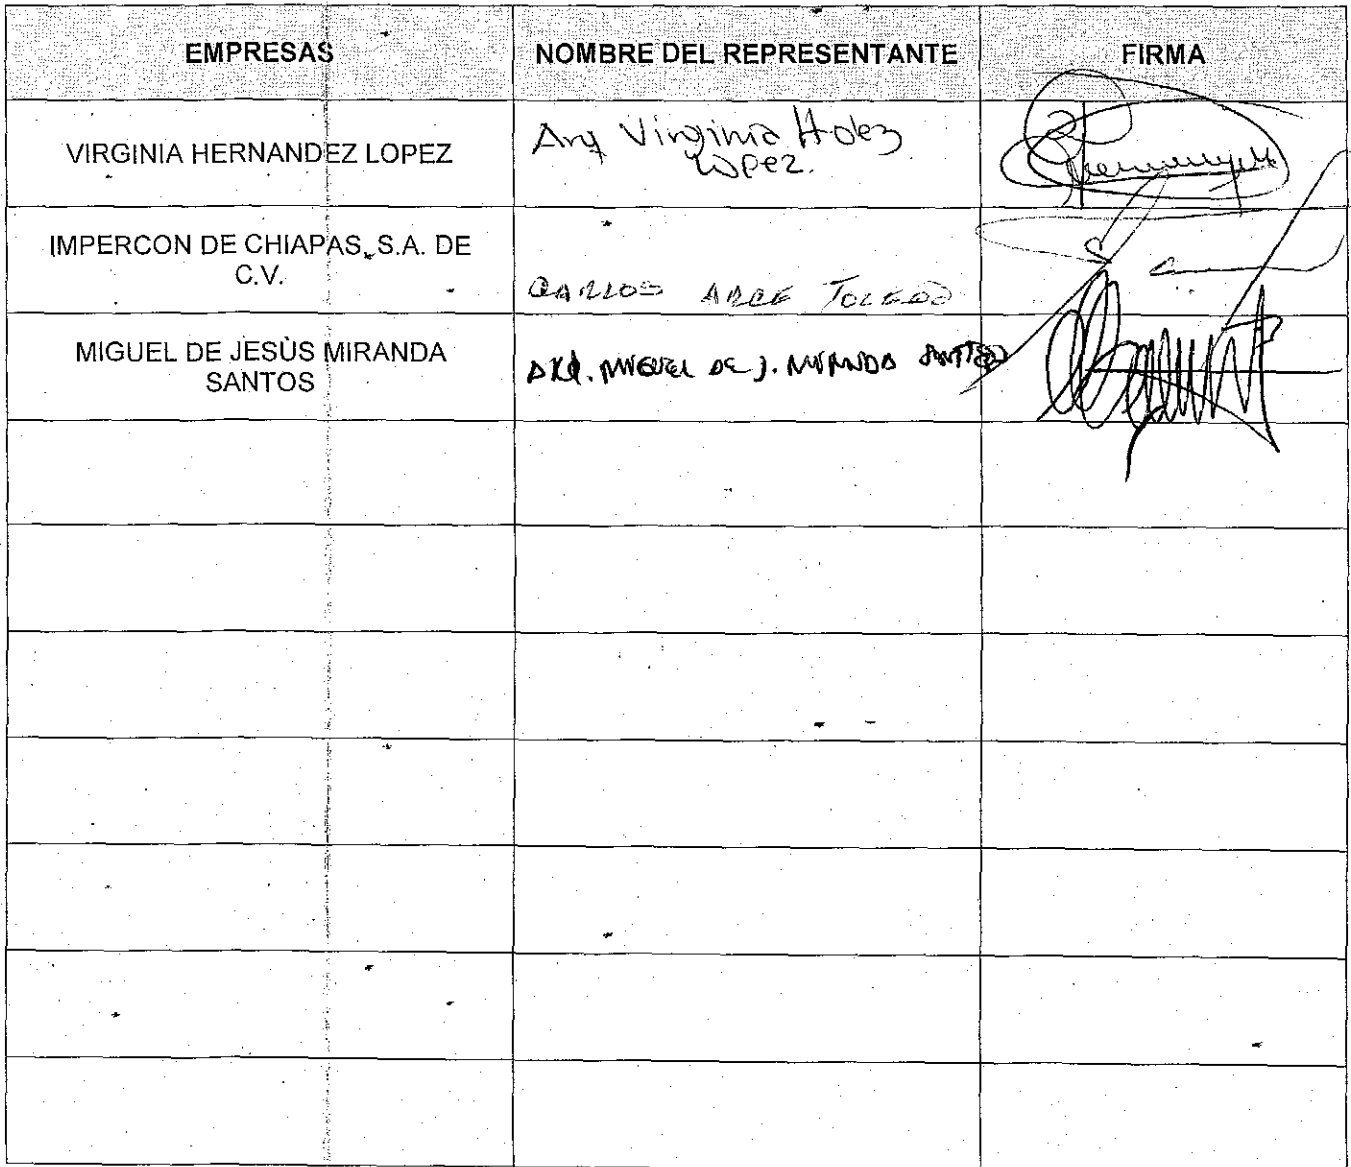 EMPRESAS
NOMBRE DEL REPRESENTANTE
FIRMA
VIRGINIA HERNANDEZ LOPEZ
Arq Virginia Hdez
Lopez.
IMPERCON DE CHIAPAS, S.A. DE
C.V.
CARLOS ARCE TOLEDO
MIGUEL DE JESÙS MIRANDA
SANTOS
ARQ. MIGUEL DE J. MIRANDA SANTOS